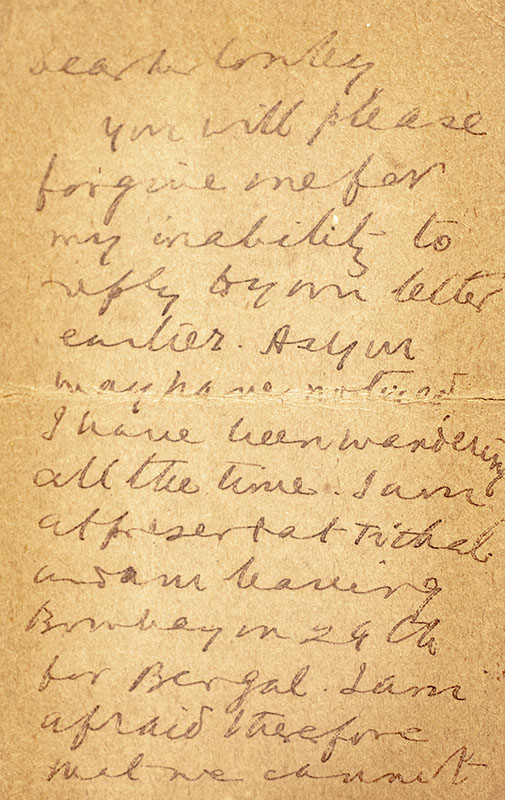 Dear Mr Conley,
You will please
forgive me for
my inability to
reply to your letter
earlier. As you
may have noticed
I have been wandering
all the time. I am
at present at Tithal
and am leaving
Bombay on 29th
for Bengal. I am
afraid therefore
that we cannot